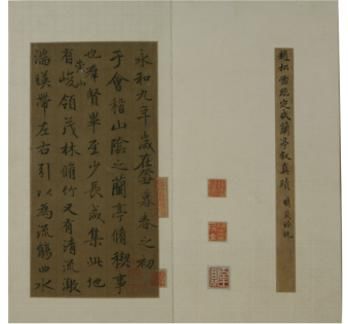 趙松雪臨定武蘭亭叙真蹟
永和九年歲在癸丑暮春之初
于會稽山陰之蘭亭脩禊事
也羣賢畢至少長咸集此地
有崇山峻領茂林脩竹又有清流激
湍暎帶左右引以為流觴曲水